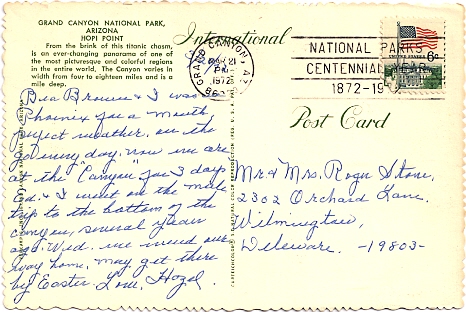 GRAND CANYON NATIONAL PARK,
ARIZONA
HOPI POINT
From the brink of this titanic chasm,
is an ever-changing panorama of one of
the most picturesque and colorful regions
in the entire world. The Canyon varies in
width from four to eighteen miles and is a
mile deep.
International
Post Card
GRAND CANYON, AZ
MAR 21
PM
1972
NATIONAL PARKS
CENTENNIAL YEAR
1872-19
UNITED STATES
6c
Dea & I was
Phoenix for a month,
perfect weather, on the
go every day. now we are
at the "Canyon" for 3 days
Ed. & I went on the mule
trip to the bottom of the
canyon, several years
ago. Wed. we wend our
way home, may get there
by Easter. Love, Hazel.
Mr & Mrs. Roger Stone,
2302 Orchard Lane,
Wilmington,
Deleware. -19803-